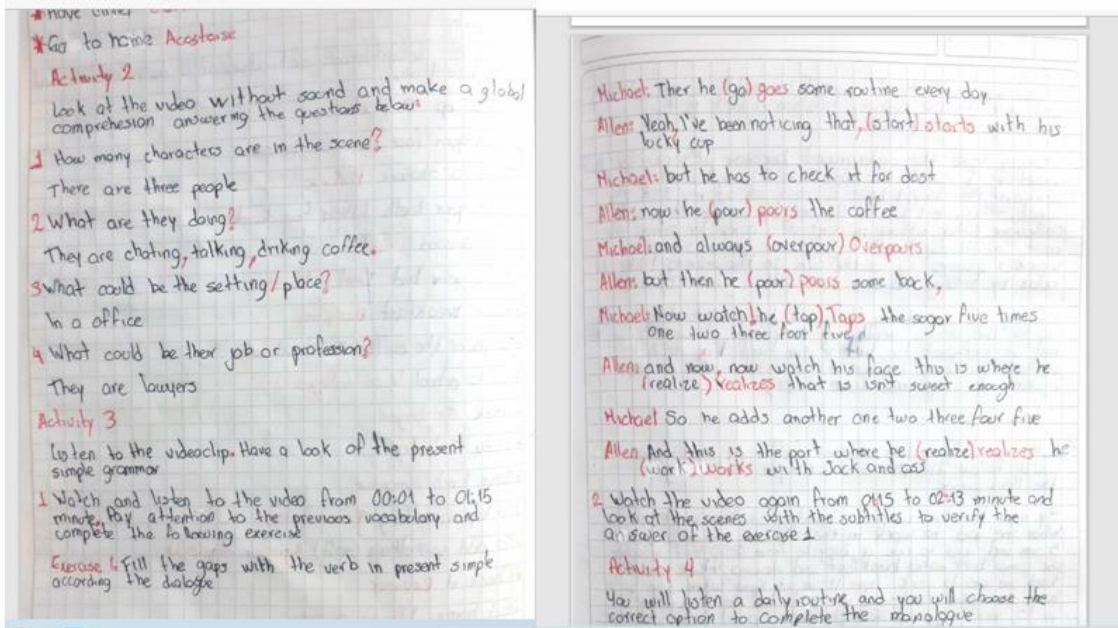 *Have
*Go to home Acostarse
Activity 2
Look at the video without sound and make a global
comprehesion answering the questions below:
1 How many characters are in the scene?
There are three people
2 What are they doing?
They are chating, talking, driking coffee.
3 What could be the setting/place?
In a office
4 What could be their job or profession?
They are lawyers
Activity 3
Listen to the videoclip. Have a look of the present
simple grammar
1 Watch and listen to the video from 00:01 to 01:15
minute. Pay attention to the previous vocabulary and
complete the following exercise
Exercise 1. Fill the gaps with the verb in present simple
according the dialogue
Michael: Ther he (go) goes same routine every day
Allen: Yeah, I've been noticing that, (start) starts with his
lucky cup
Michael: but he has to check it for dost
Allen: now he (pour) pours the coffee
Michael: and always (overpour) Overpours
Allen: but then he (pour) pours some back,
Michael: Now watch! he (tap) Taps the sugar five times
one two three four five
Allen: and now, now watch his face this is where he
(realize) realizes that is isn't sweet enough
Michael So he adds another one two three four five
Allen And this is the part where he (realize) realizes he
(work) works with Jack and ass
2 Watch the video again from 01:15 to 02:13 minute and
look at the scenes with the subtitles to verify the
answer of the exercise 1
Activity 4
You will listen a daily routine and you will choose the
correct option to complete the monologue